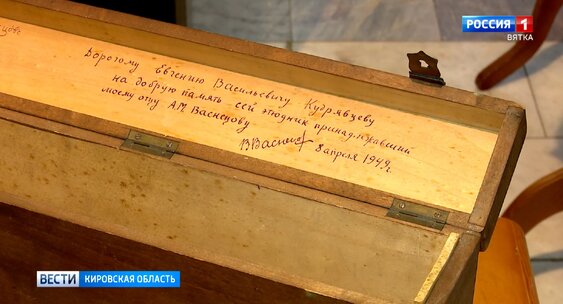 РОССИЯ 1
ВЯТКА
Дорогому Евгению Васильевичу Кудрявцеву
на добрую память сей этюдник принадлежавший
моему отцу А.М. Васнецову
8 апреля 1949 г.
ВЕСТИ КИРОВСКАЯ ОБЛАСТЬ